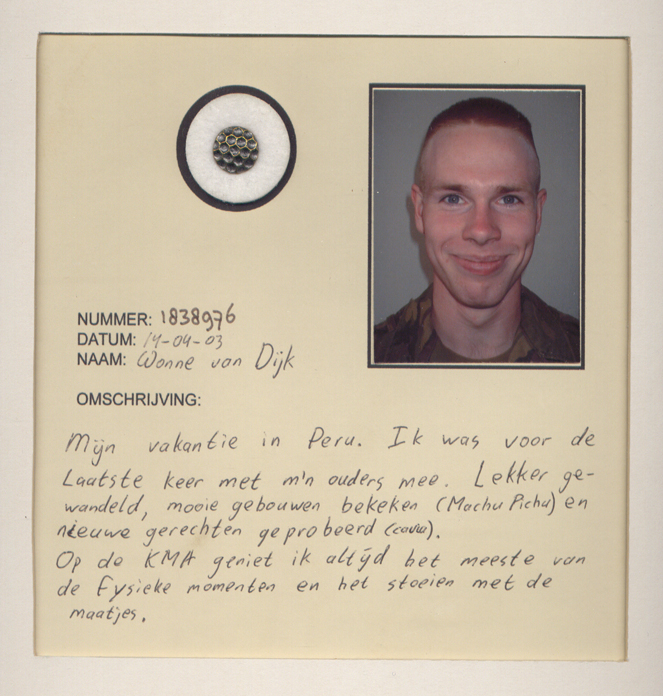 NUMMER: 1838976
DATUM: 14-04-03
NAAM: Wonne van Dijk
OMSCHRIJVING:
Mijn vakantie in Peru. Ik was voor de
Laatste keer met m'n ouders mee. Lekker ge-
wandeld, mooie gebouwen bekeken (Machu Pichu) en
nieuwe gerechten geprobeerd (cavia).
Op de KMA geniet ik altijd het meeste van
de Fysieke momenten en het stoeien met de
maatjes.